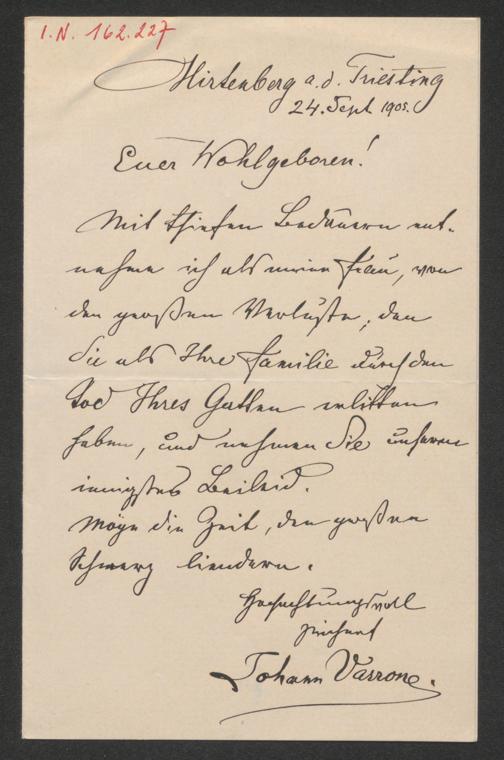 I.N. 162.227
Hirtenberg a. d. Triesting
24. Sept 1905.
Euer Wohlgeboren!
Mit thiefen Bedauern ent-
nehme ich als meine Frau, von
den großen Verluste, den
Sie als Ihre Familie durch den
Tod Ihres Gatten erlitten
haben, und nehmen Sie unseren
innigstes Beileid.
Möge die Zeit, den großen
Schmerz liendern.
Hochachtungsvoll
zeichnet
Johann Varrone.